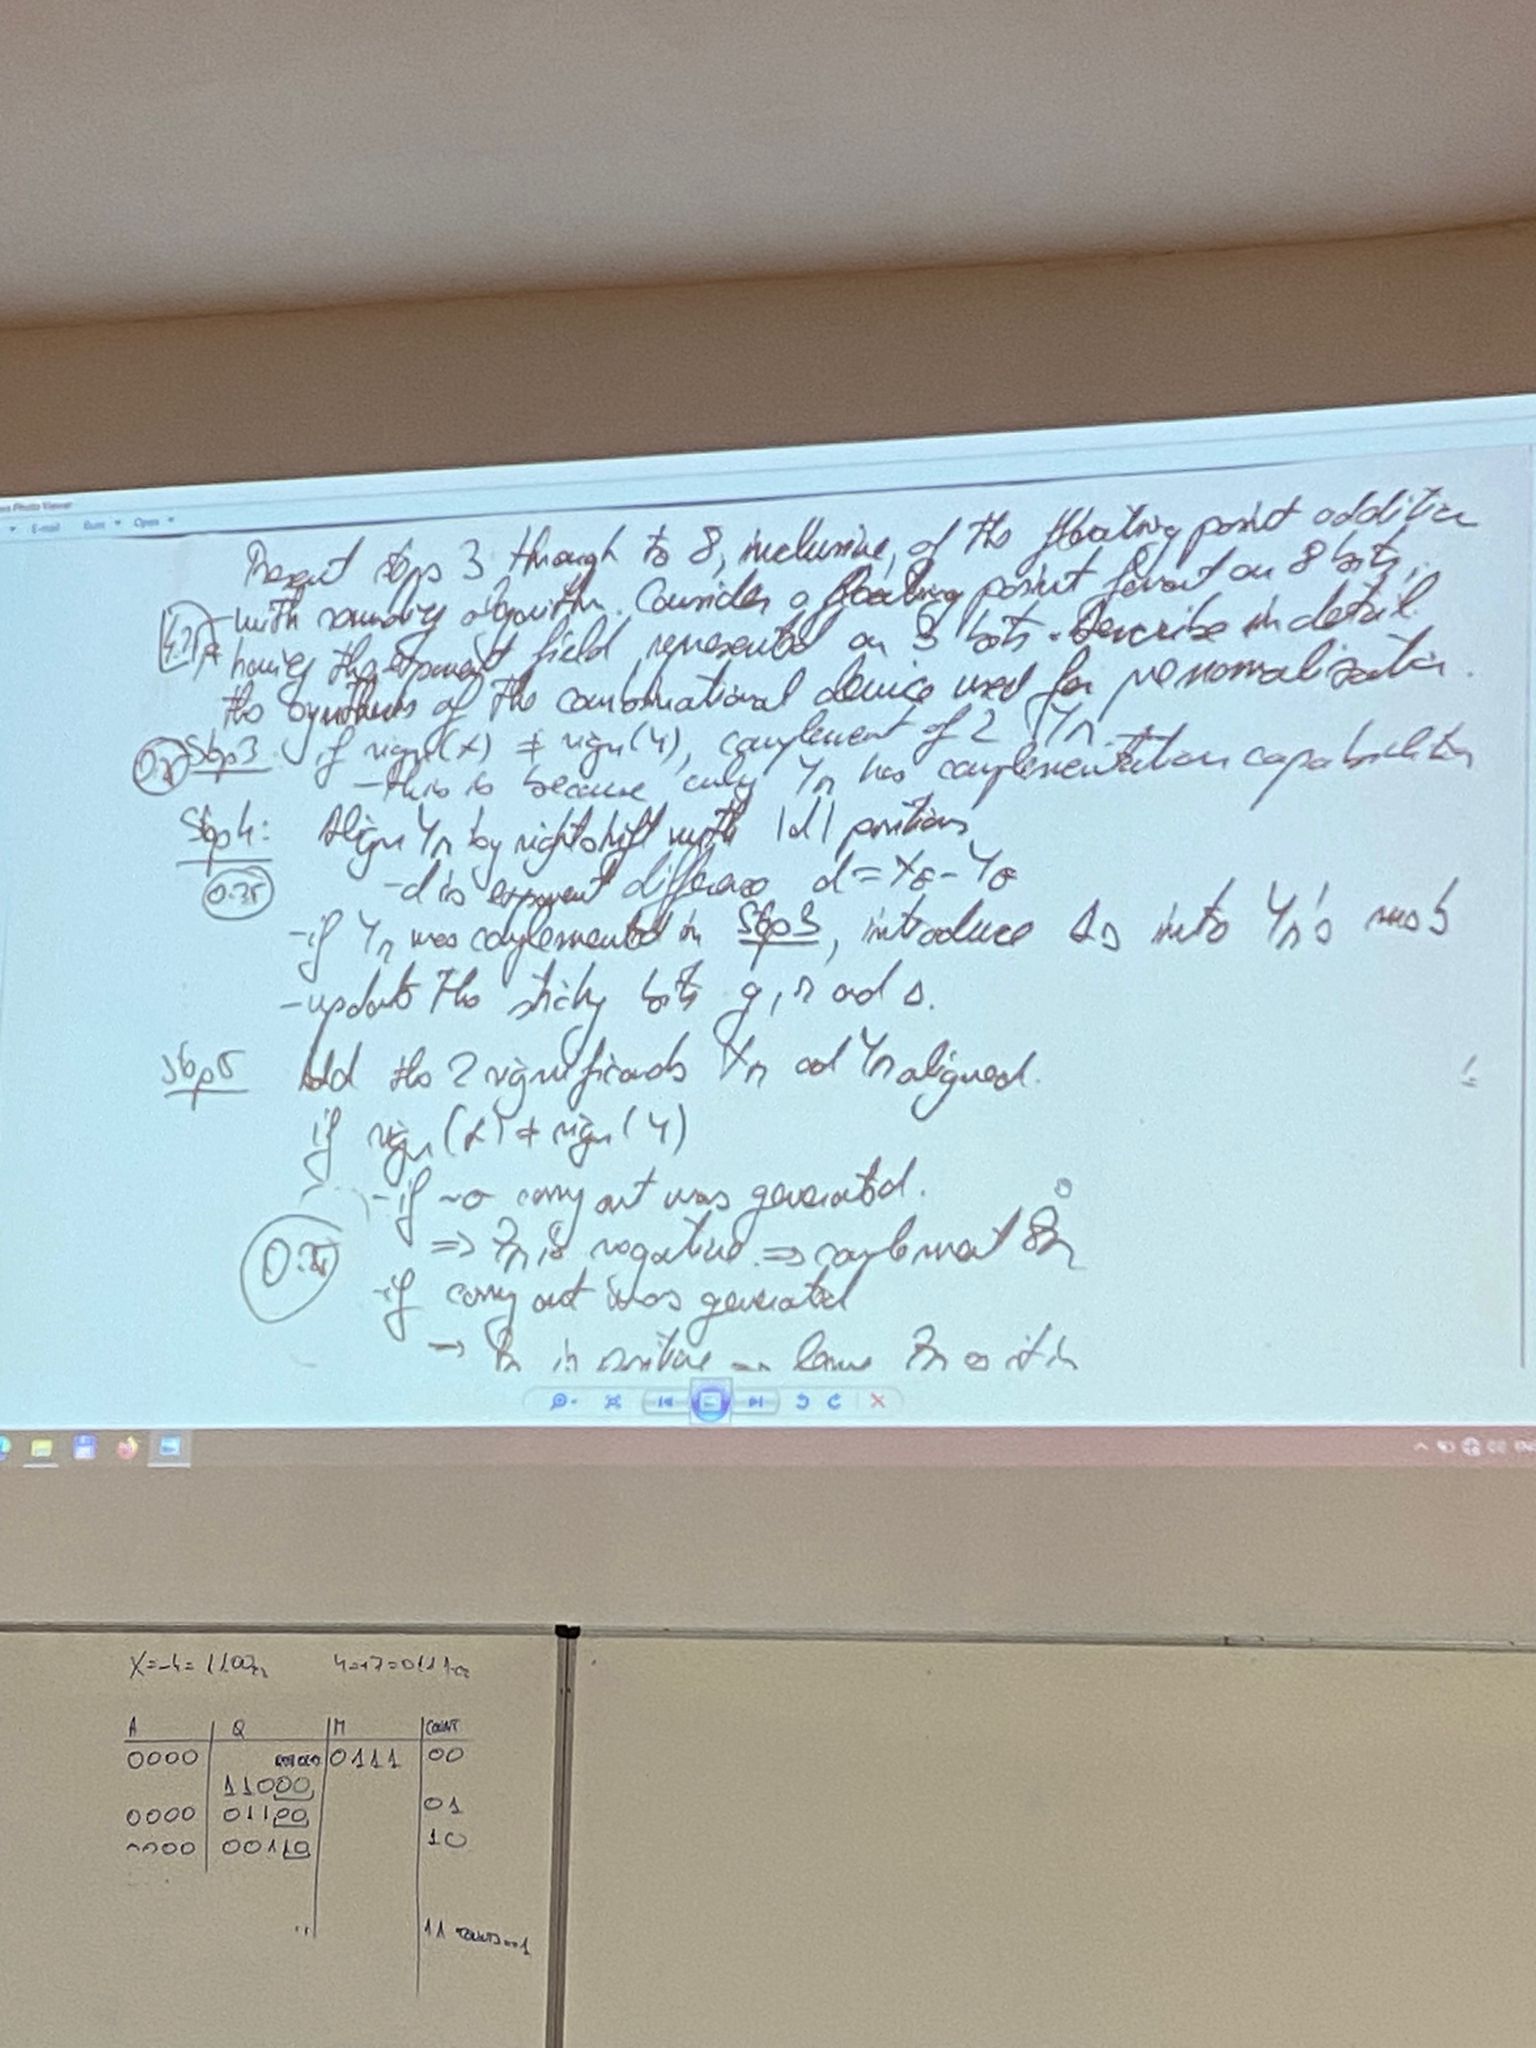 Photo Viewer
E-mail Burn Open
Present steps 3 through to 8, inclusive, of the floating point addition
with rounding algorithm. Consider a floating point format on 8 bits,
having the exponent field represented on 3 bits. Describe in detail
the synthesis of the combinational device used for renormalization.
Step3 if sign(x) ≠ sign(y), complement of 2 Yn
- this is because only Yn has complementation capabilities
Step4: Align Yn by right shift with |d| positions
0.25
- d is exponent difference d = XE - YE
- if Yn was complemented in Step3, introduce 1s into Yn's msb
- update the sticky bits g, r and s.
Step5 Add the 2 significands Xn and Yn aligned.
if sign(x) ≠ sign(y)
- if no carry out was generated.
⇒ Zn is negative ⇒ complement Zn
- if carry out was generated
→ Zn is positive leave Zn as it is
X=-4=1100 Y=+7=0111
A Q M COUNT
0000 0111 00
11000
0000 01100 01
00110 10
11